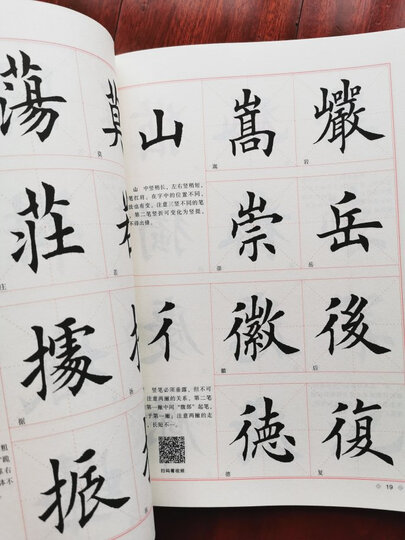 蕩
莫
莊
庄
據
据
振
山 嵩 巖
嵩 岩
山 中竖稍长，左右竖稍短，
笔扛肩，在字中的位置不同，
法也有变，注意三竖不同的笔
第二笔竖折可变化为竖提，
不得出锋。
崇 岳
崇 岳
彳 徽 後
徽 后
竖笔必须垂露，但不可
注意两撇的关系，第二笔
第一撇中间“腹部”起笔，
于第一撇，注意两撇的走
，长短不一。
扫码看视频
德 復
德 复
19